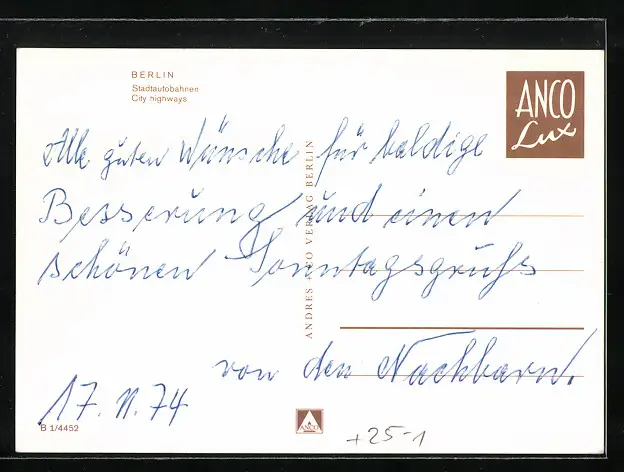 BERLIN
Stadtautobahnen
City highways
ANCO
Lux
Alle guten Wünsche für baldige
Besserung und einen
schönen Sonntagsgruß
von den Nachbarn.
17. 11. 74
ANDRES ANCO VERLAG BERLIN
B 1/4452
ANCO
+25-1